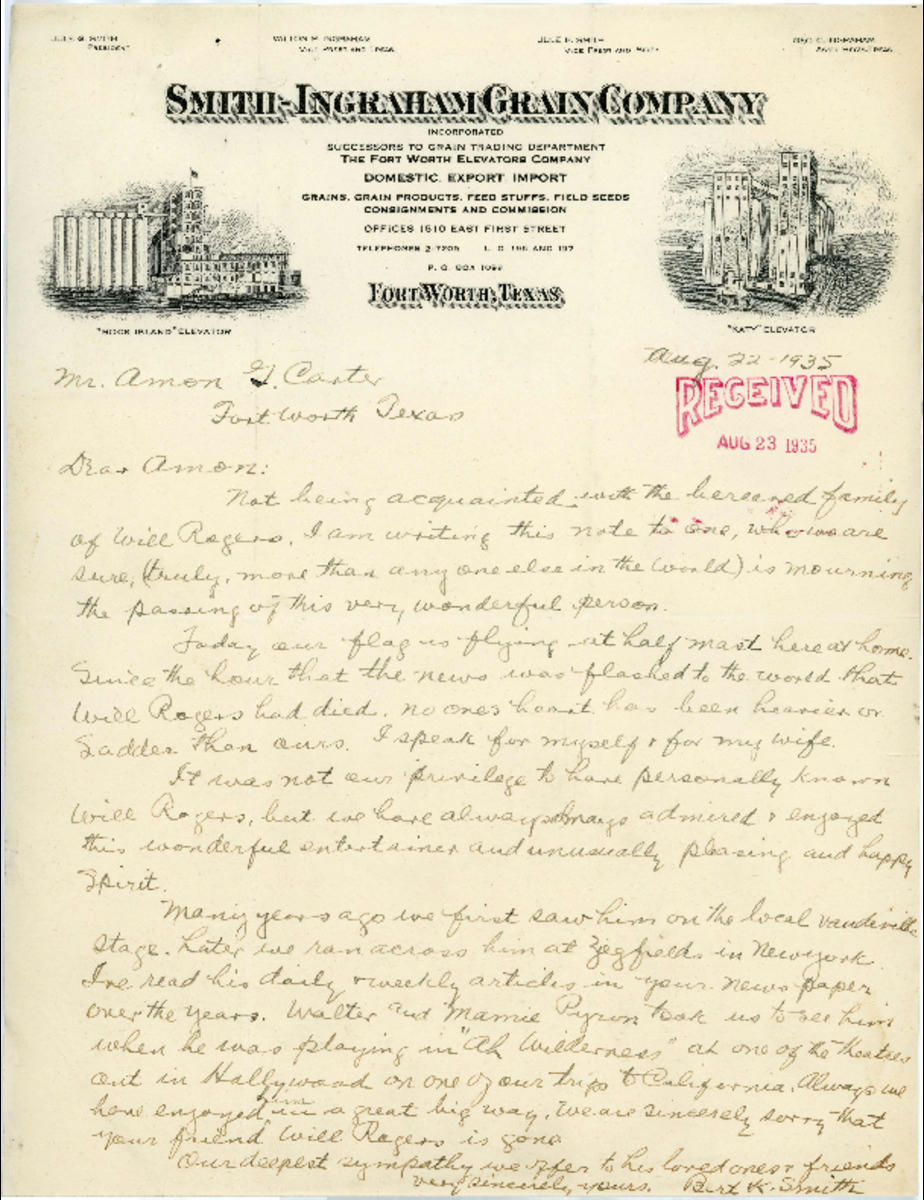 JULE G. SMITH
PRESIDENT
WILTON P. INGRAHAM
VICE PREST AND TREAS.
JULE R. SMITH
VICE PREST AND SECTY.
GEO. C. INGRAHAM
ASST. SECY.-TREAS.
SMITH-INGRAHAM GRAIN COMPANY
INCORPORATED
SUCCESSORS TO GRAIN TRADING DEPARTMENT
THE FORT WORTH ELEVATORS COMPANY
DOMESTIC, EXPORT, IMPORT
GRAINS, GRAIN PRODUCTS, FEED STUFFS, FIELD SEEDS
CONSIGNMENTS AND COMMISSION
OFFICES 1510 EAST FIRST STREET
TELEPHONES L. D. 196 AND 197
P. O. BOX
FORT WORTH, TEXAS
"ROCK ISLAND" ELEVATOR
"KATY" ELEVATOR
Aug. 22-1935
Mr. Amon G. Carter
Fort Worth Texas
RECEIVED
AUG 23 1935
Dear Amon:
Not being acquainted with the bereaved family
of Will Rogers, I am writing this note to one, who we are
sure, (truly, more than any one else in the world) is mourning
the passing of this very, wonderful person.
Today our flag is flying at half mast here at home.
Since the hour that the news was flashed to the world that
Will Rogers had died, no ones heart has been heavier or
Sadder than ours. I speak for myself & for my wife.
It was not our privilege to have personally known
Will Rogers, but we have always admired & enjoyed
this wonderful entertainer and unusually pleasing and happy
Spirit.
Many years ago we first saw him on the local vaudeville
stage. Later we ran across him at Zegfields in New York
I've read his daily & weekly articles in your news paper
over the years. Walter and Mamie Pyron took us to see him
when he was playing in "Ah Wilderness" at one of the theatres
out in Hollywood on one of our trips to California. Always we
have enjoyed him in a great big way. We are sincerely sorry that
your friend Will Rogers is gone
Our deepest sympathy we offer to his loved ones & friends
very sincerely, yours. Bert K. Smith